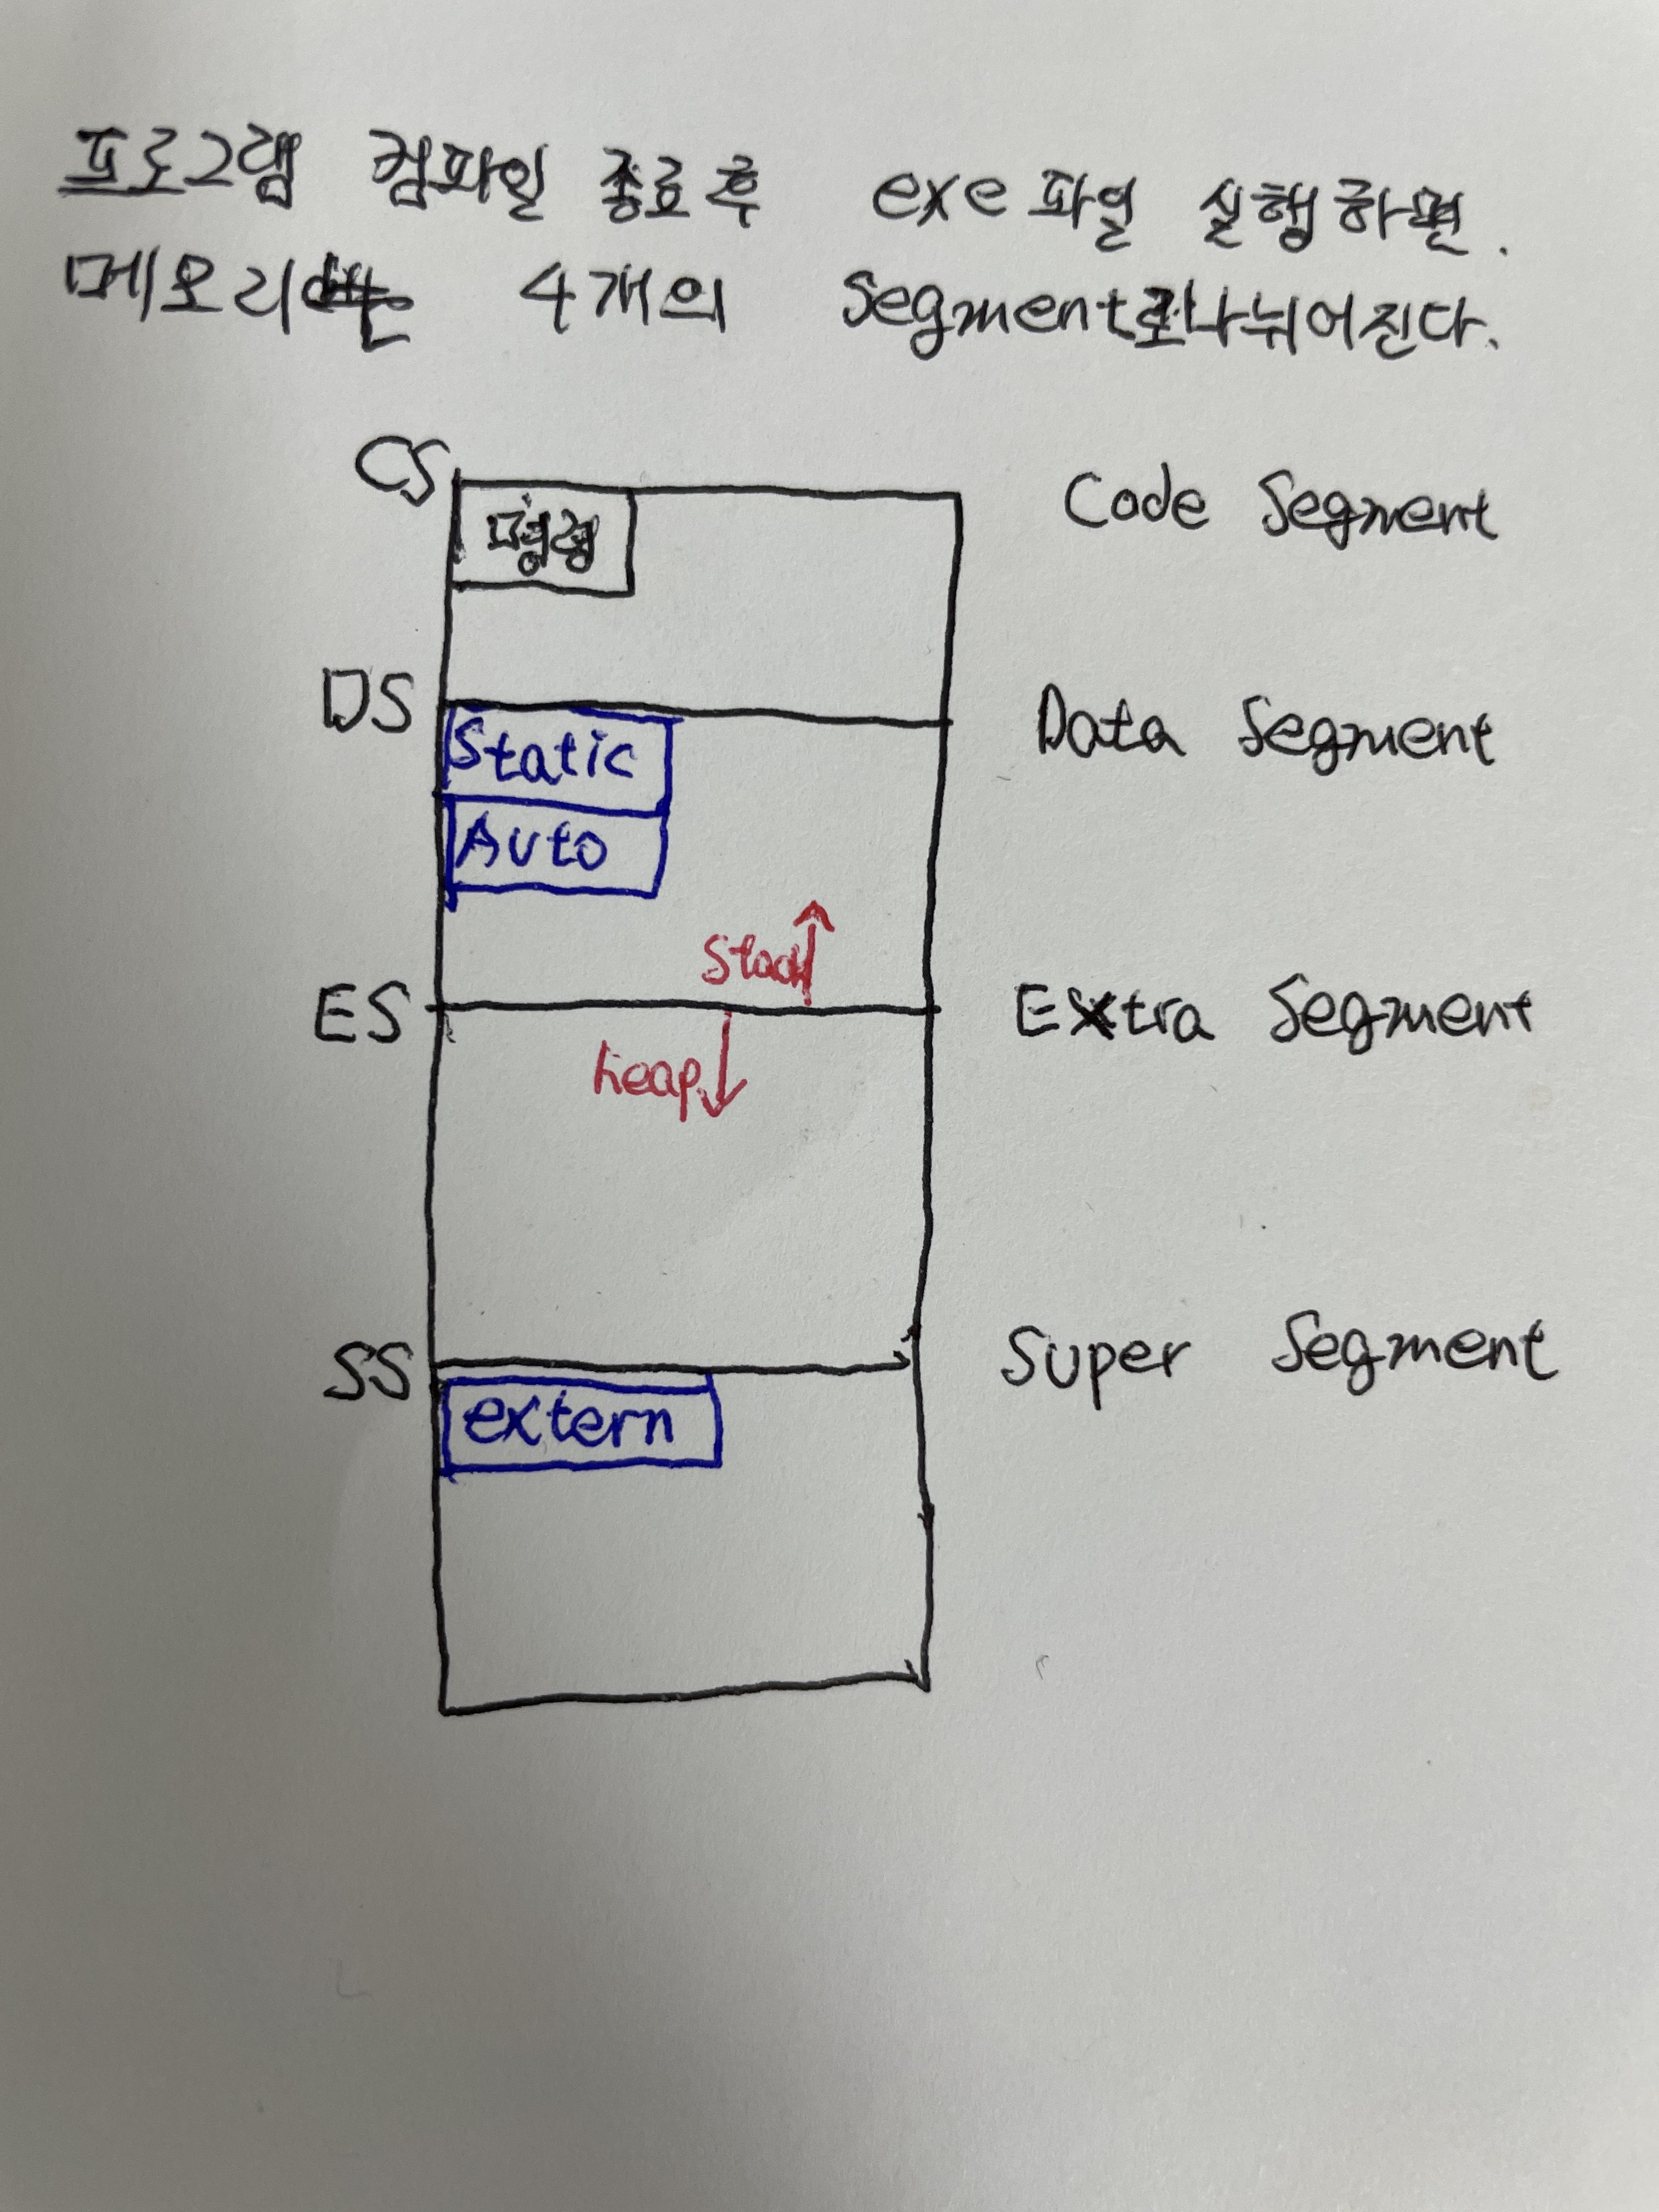 프로그램 컴파일 종료후 exe파일 실행하면.
메모리는 4개의 Segment로나뉘어진다.
CS
명령
Code Segment
DS
Static
Data Segment
Auto
Stack
ES
Extra Segment
heap
SS
Super Segment
extern